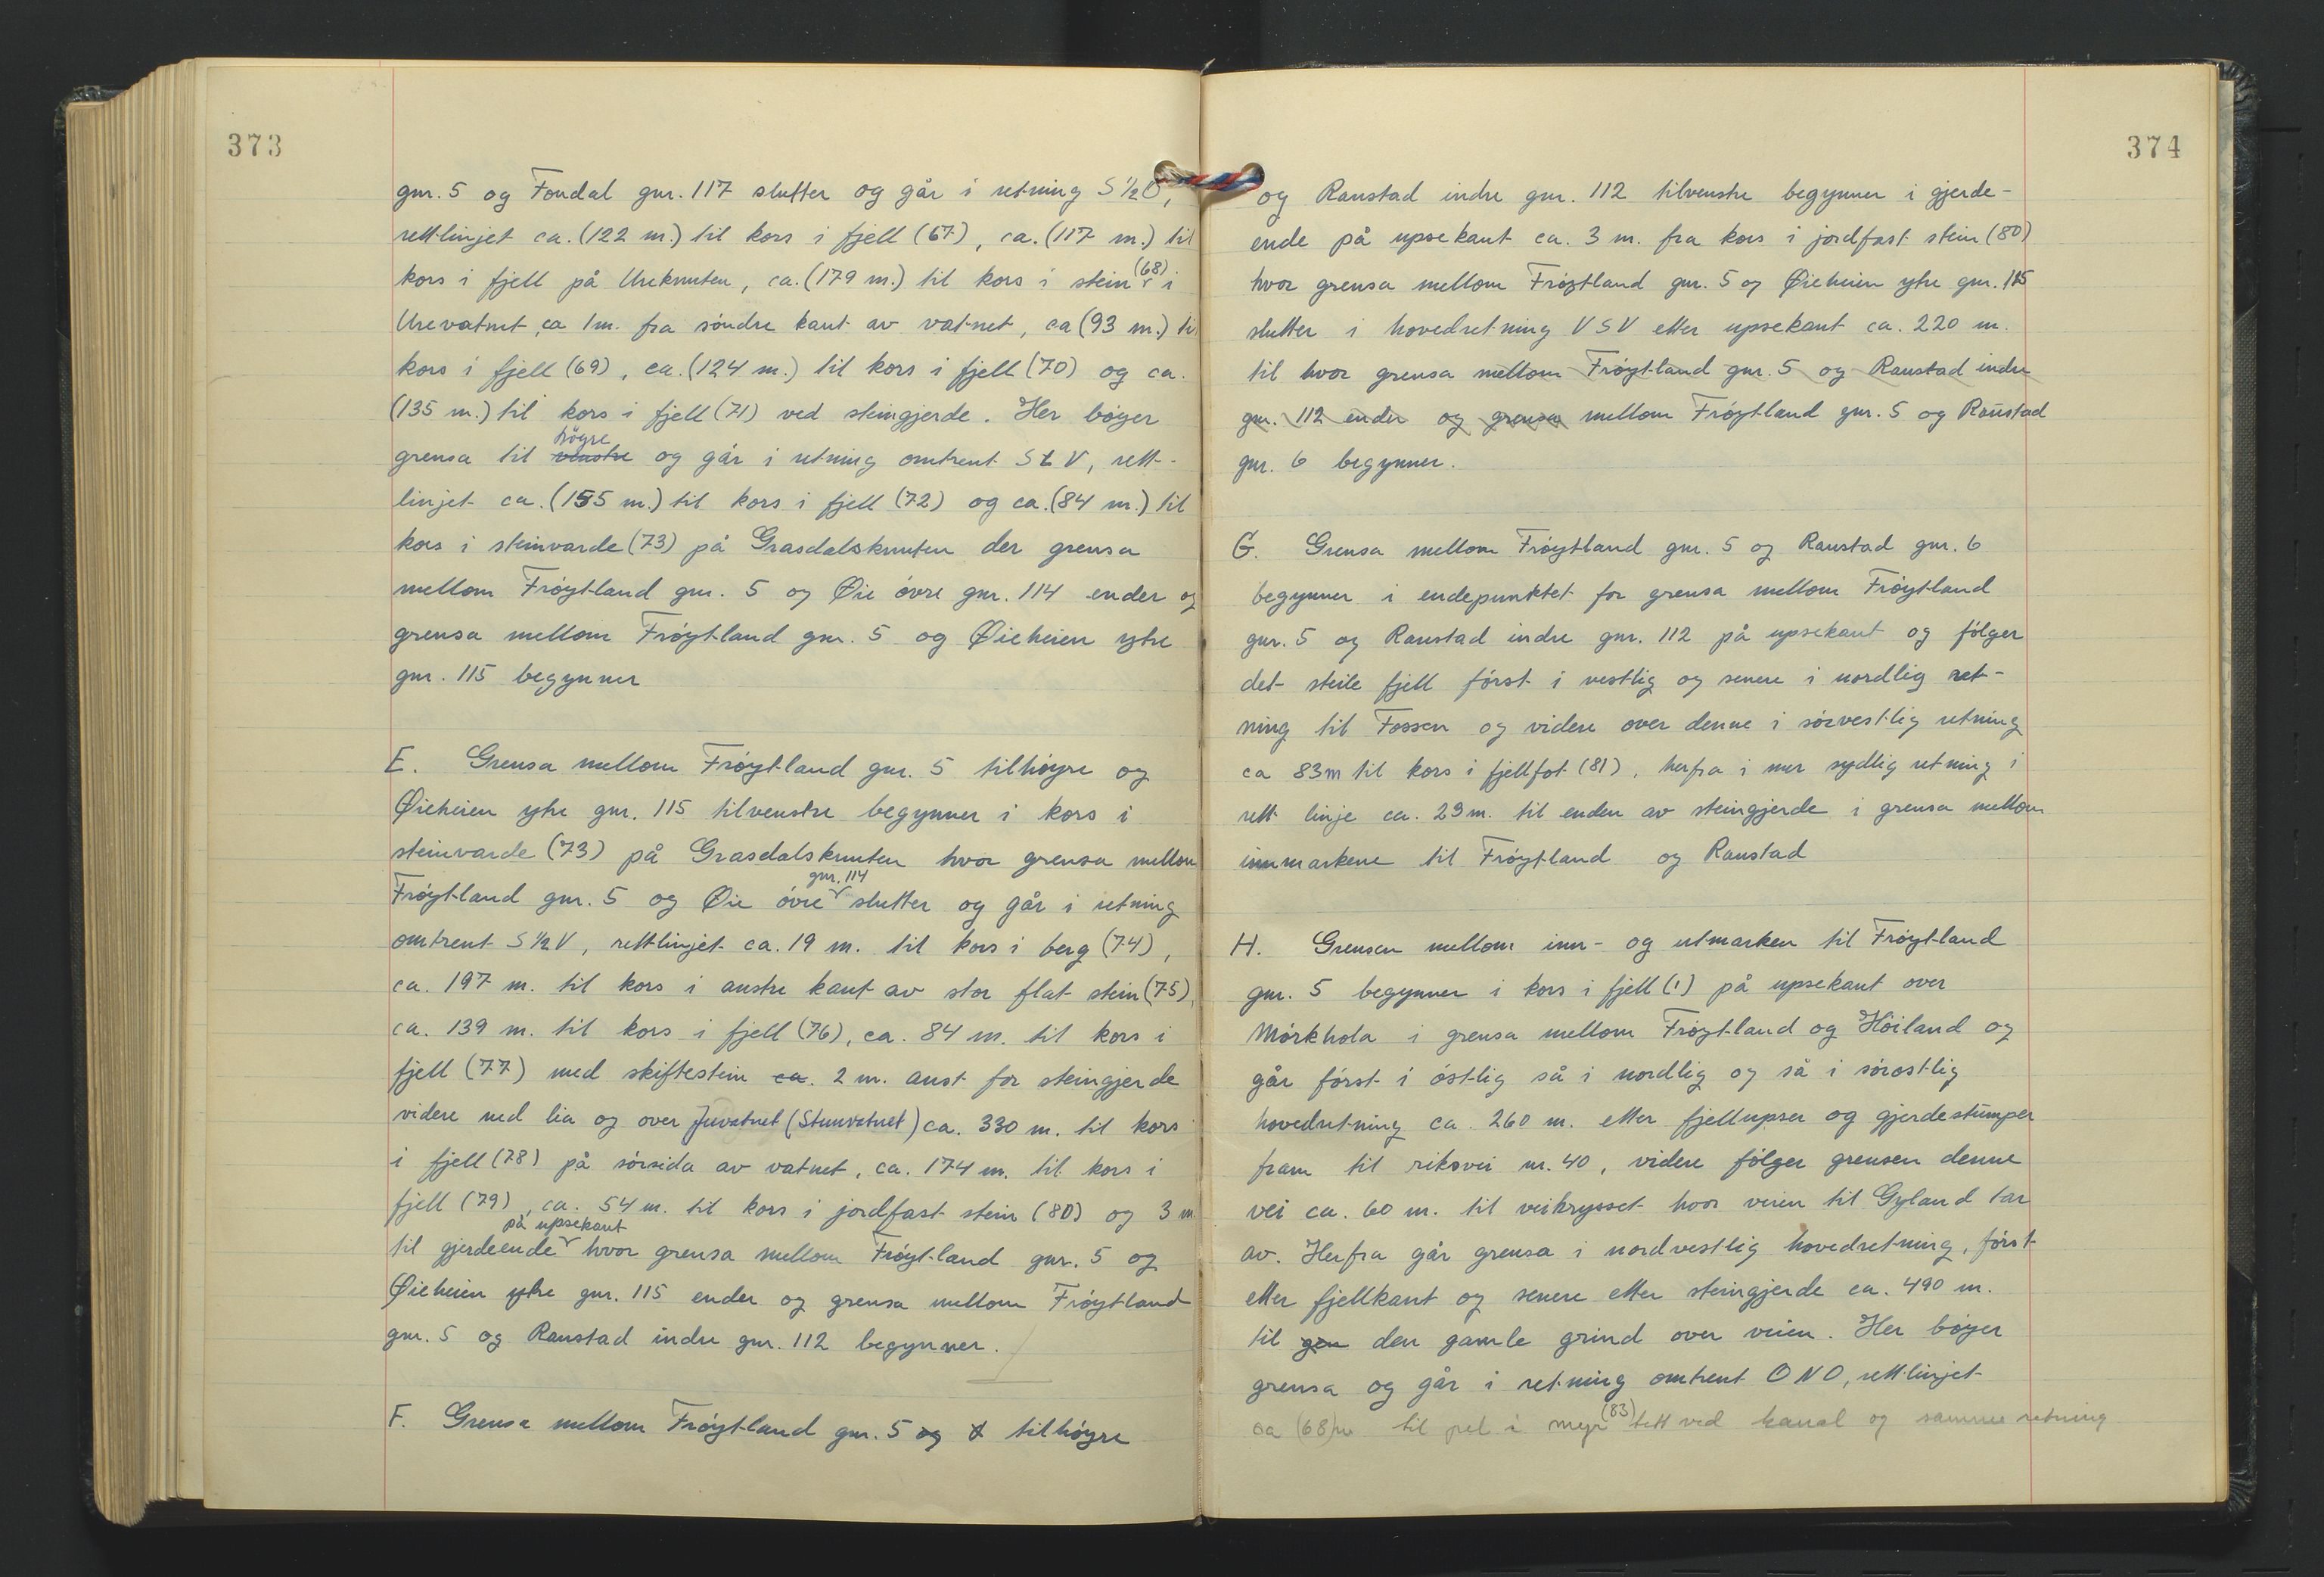 373
gnr. 5 og Fondal gnr. 117 slutter og går i retning S ½ O,
rettlinjet ca. (122 m.) til kors i fjell (67), ca. (117 m.) til
kors i fjell på Ureknuten, ca. (179 m.) til kors i stein (68) i
Urevatnet, ca 1m. fra søndre kant av vatnet, ca (93 m.) til
kors i fjell (69), ca. (124 m.) til kors i fjell (70) og ca.
(135 m.) til kors i fjell (71) ved steingjerde. Her bøyer
grensa til venstre høyre og går i retning omtrent S t V, rett-
linjet ca. (155 m.) til kors i fjell (72) og ca. (84 m.) til
kors i steinvarde (73) på Grasdalsknuten der grensa
mellom Frøytland gnr. 5 og Øie øvre gnr. 114 ender og
grensa mellom Frøytland gnr. 5 og Øieheien ytre
gnr. 115 begynner
E. Grensa mellom Frøytland gnr. 5 tilhøyre og
Øieheien ytre gnr. 115 tilvenstre begynner i kors i
steinvarde (73) på Grasdalsknuten hvor grensa mellom
Frøytland gnr. 5 og Øie øvre gnr. 114 slutter og går i retning
omtrent S ½ V, rettlinjet ca. 19 m. til kors i berg (74),
ca. 197 m. til kors i austre kant av stor flat stein (75),
ca. 139 m. til kors i fjell (76), ca. 84 m. til kors i
fjell (77) med skiftestein ca. 2 m. aust for steingjerde
videre ned lia og over Juvatnet (Stuvvatnet) ca. 330 m. til kors
i fjell (78) på sørsida av vatnet, ca. 174 m. til kors i
fjell (79), ca. 54 m. til kors i jordfast stein (80) og 3 m.
til gjerdeende på upsekant hvor grensa mellom Frøytland gnr. 5 og
Øieheien ytre gnr. 115 ender og grensa mellom Frøytland
gnr. 5 og Raustad indre gnr. 112 begynner.
F. Grensa mellom Frøytland gnr. 5 og tilhøyre
374
og Raustad indre gnr. 112 tilvenstre begynner i gjerde-
ende på upsekant ca. 3 m. fra kors i jordfast stein (80)
hvor grensa mellom Frøytland gnr. 5 og Øieheien ytre gnr. 115
slutter i hovedretning VSV etter upsekant ca. 220 m.
til hvor grensa mellom Frøytland gnr. 5 og Raustad indre
gnr. 112 ender og grensa mellom Frøytland gnr. 5 og Raustad
gnr. 6 begynner.
G. Grensa mellom Frøytland gnr. 5 og Raustad gnr. 6
begynner i endepunktet for grensa mellom Frøytland
gnr. 5 og Raustad indre gnr. 112 på upsekant og følger
det steile fjell først i vestlig og senere i nordlig ret-
ning til Fossen og videre over denne i sørvestlig retning
ca 83m til kors i fjellfot (81), herfra i mer sydlig retning i
rett linje ca. 29 m. til enden av steingjerde i grensa mellom
innmarkene til Frøytland og Raustad
H. Grensen mellom inn- og utmarken til Frøytland
gnr. 5 begynner i kors i fjell (1) på upsekant over
Mørkhola i grensa mellom Frøytland og Høiland og
går først i østlig så i nordlig og så i sørøstlig
hovedretning ca. 260 m. etter fjellupser og gjerdestumper
fram til riksvei nr. 40, videre følger grensen denne
vei ca. 60 m. til veikrysset hvor veien til Gyland tar
av. Herfra går grensa i nordvestlig hovedretning, først
etter fjellkant og senere etter steingjerde ca. 490 m.
til gen den gamle grind over veien. Her bøyer
grensa og går i retning omtrent ONO, rettlinjet
ca (68)m til pel i myr (83) tett ved kanal og samme retning